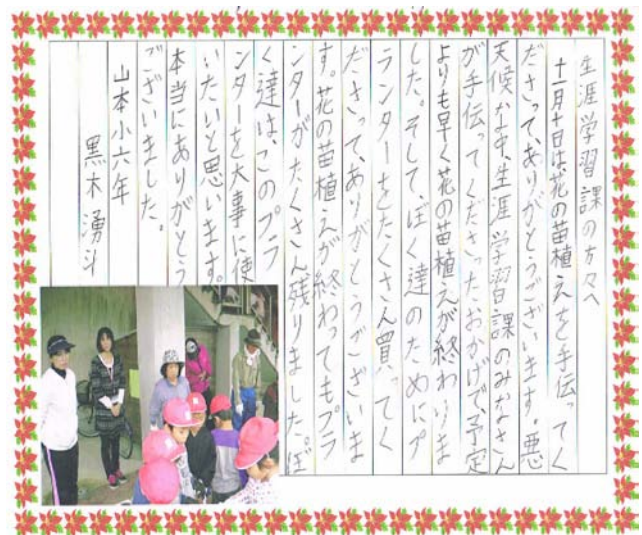 生涯学習課の方々へ
十一月十日は、花の苗植えを手伝ってく
ださって、ありがとうございます。悪
天候な中、生涯学習課のみなさん
が手伝ってくださったおかげで、予定
よりも早く花の苗植えが終わりま
した。そして、ぼく達のためにプ
ランターをたくさん買ってく
ださって、ありがとうございま
す。花の苗植えが終わってもプラ
ンターがたくさん残りました。ぼ
く達は、このプラ
ンターを大事に使
いたいと思います。
本当にありがとう
ございました。
山本小六年
黒木湧斗